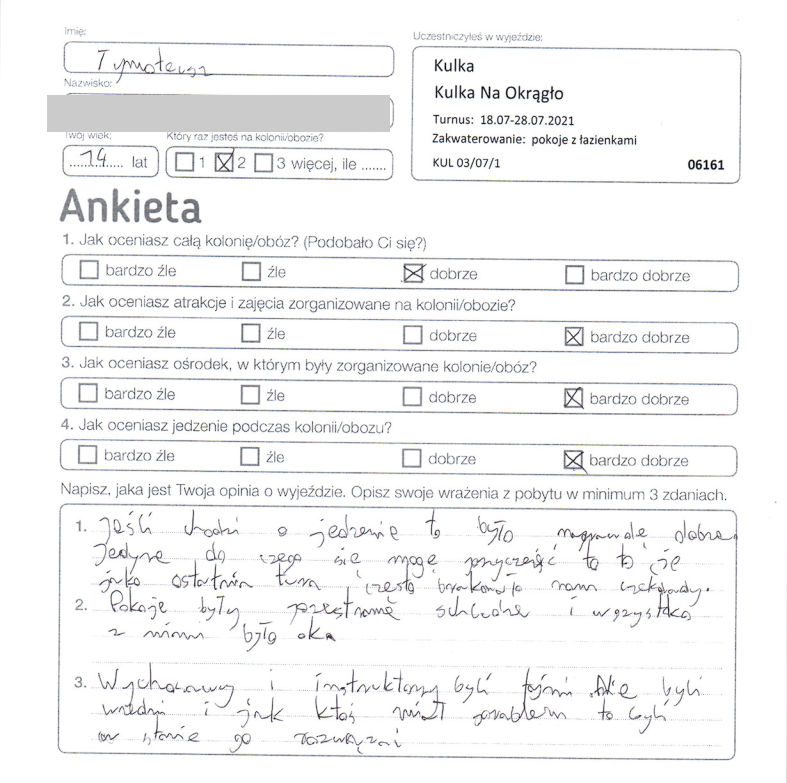 Imię:
Tymoteusz
Nazwisko:
Twój wiek: Który raz jesteś na kolonii/obozie?
14 lat 1 2 3 więcej, ile .......
Uczestniczyłeś w wyjeździe:
Kulka
Kulka Na Okrągło
Turnus: 18.07-28.07.2021
Zakwaterowanie: pokoje z łazienkami
KUL 03/07/1 06161
Ankieta
1. Jak oceniasz całą kolonię/obóz? (Podobało Ci się?)
bardzo źle źle dobrze bardzo dobrze
2. Jak oceniasz atrakcje i zajęcia zorganizowane na kolonii/obozie?
bardzo źle źle dobrze bardzo dobrze
3. Jak oceniasz ośrodek, w którym były zorganizowane kolonie/obóz?
bardzo źle źle dobrze bardzo dobrze
4. Jak oceniasz jedzenie podczas kolonii/obozu?
bardzo źle źle dobrze bardzo dobrze
Napisz, jaka jest Twoja opinia o wyjeździe. Opisz swoje wrażenia z pobytu w minimum 3 zdaniach.
1. Jeśli chodzi o jedzenie to było naprawdę dobre,
Jedyne do czego się mogę przyczepić to to że
jako ostatnia tura często brakowało nam czekolady.
2. Pokoje były przestronne schludne i wszystko
z nimi było oka
3. Wychowawcy i instruktorzy byli fajni. Nie byli
wredni i jak ktoś miał problem to byli
w stanie go rozwiązać